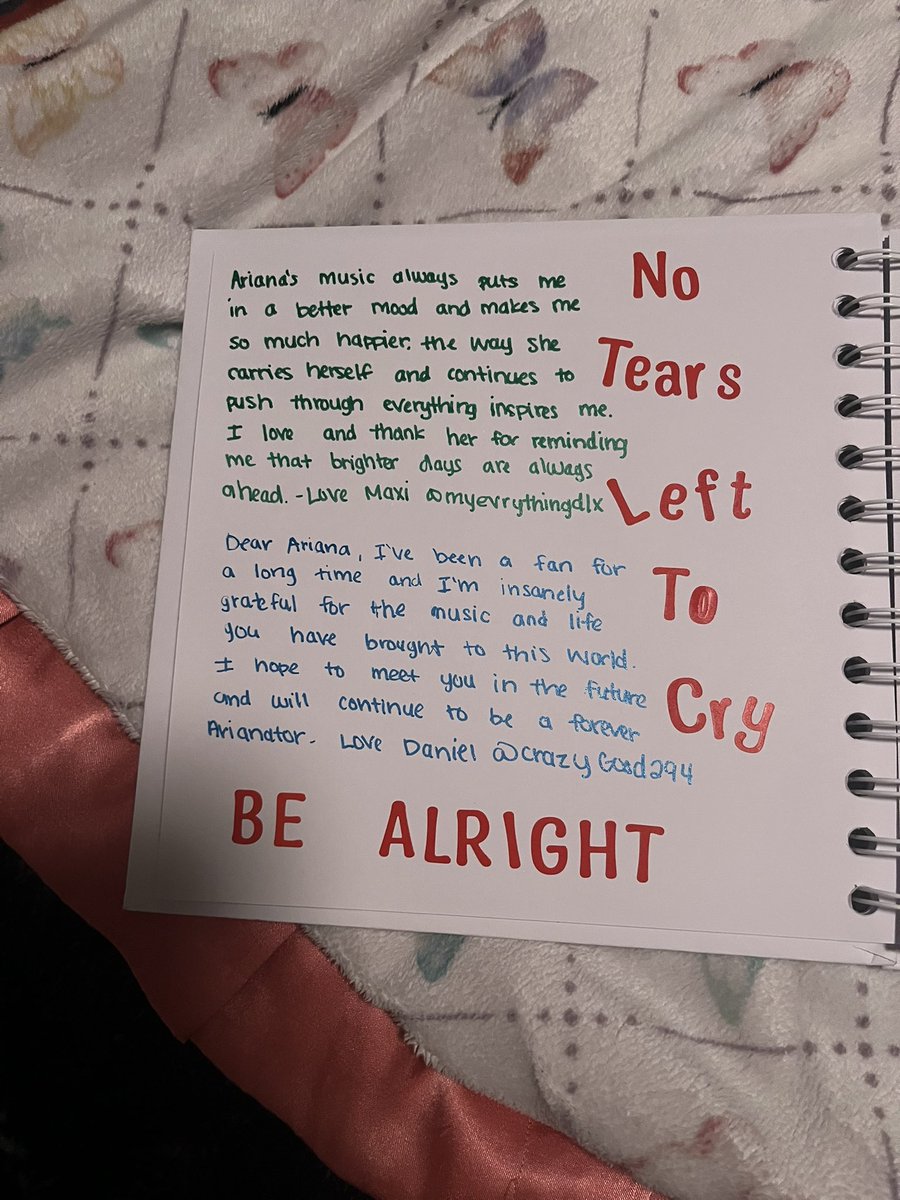 Ariana's music always puts me
in a better mood and makes me
so much happier. the way she
carries herself and continues to
push through everything inspires me.
I love and thank her for reminding
me that brighter days are always
ahead. -Love Maxi @myevrythingdlx
No
Tears
Left
To
Cry
Dear Ariana, I've been a fan for
a long time and I'm insanely
grateful for the music and life
you have brought to this world.
I hope to meet you in the future
and will continue to be a forever
Arianator. Love Daniel @CrazyGood294
BE ALRIGHT